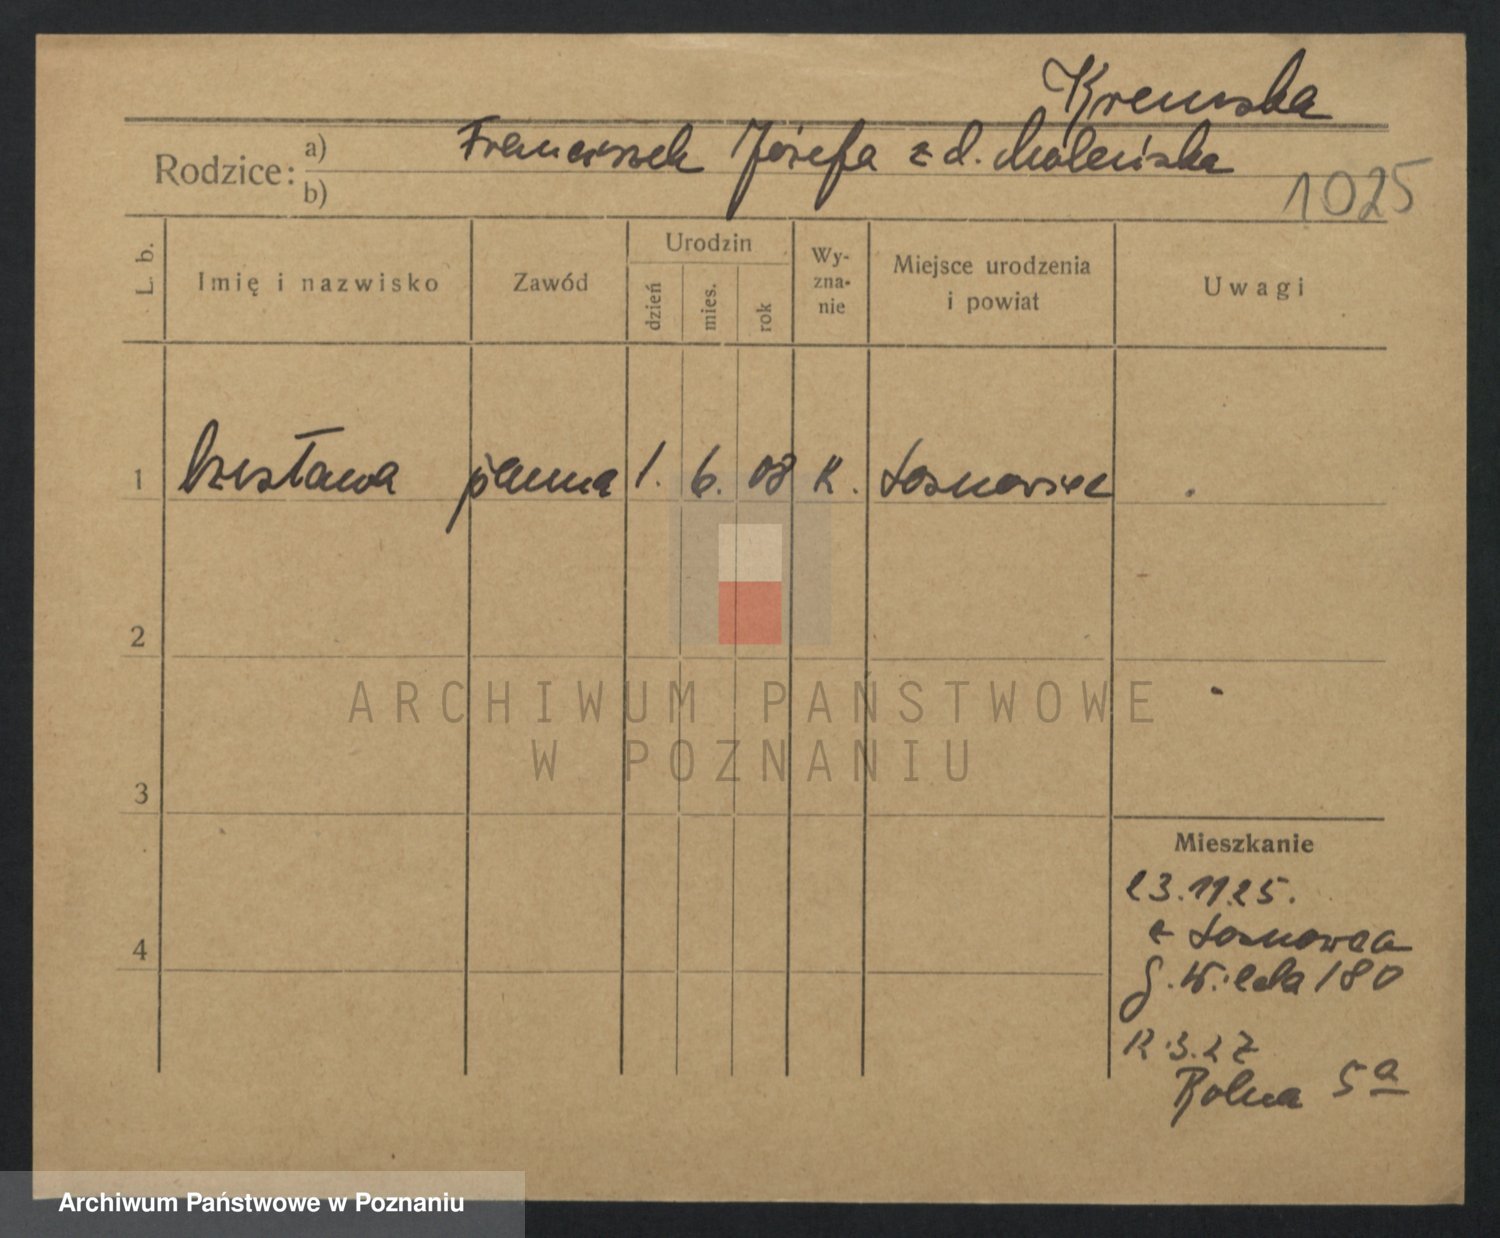 Kremska
Rodzice: a) Franciszek Józefa z d. Moleńska
b)
1025
L. b.
Imię i nazwisko
Zawód
Urodzin
dzień
mies.
rok
Wy-
zna-
nie
Miejsce urodzenia
i powiat
Uwagi
1 Czesława panna 1. 6. 08 K. Sosnowiec
2
3
4
ARCHIWUM PAŃSTWOWE
W POZNANIU
Mieszkanie
23.11.25.
z Sosnowca
G. Wilda 180
12.3.27
Rolna 5a
Archiwum Państwowe w Poznaniu